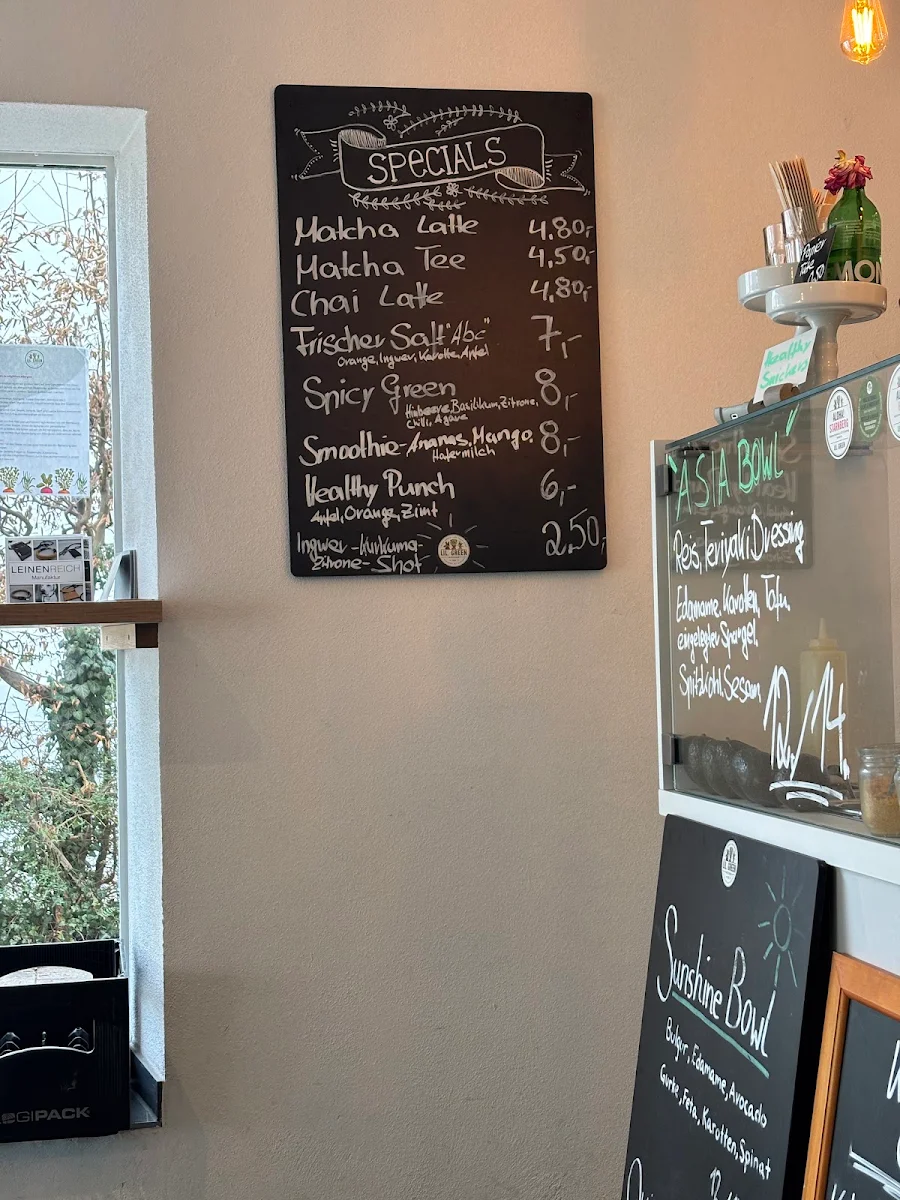 SPECIALS
Matcha Latte 4,80,-
Matcha Tee 4,50,-
Chai Latte 4,80,-
Frischer Saft "Abc" 7,-
Orange, Ingwer, Karotte, Apfel
Spicy Green 8,-
Himbeere, Basilikum, Zitrone,
Chilli, Agave
Smoothie-Ananas, Mango, 8,-
Hafermilch
Healthy Punch 6,-
Apfel, Orange, Zimt
Ingwer-Kurkuma- 2,50,
Zitrone-Shot
LIL. GREEN
LEINENREICH
Manufaktur
GIPACK
Papier
MON
Healthy
Snickers
"ASIA BOWL"
Reis, Teriyaki Dressing
Edamame, Karotten, Tofu,
eingelegter Spargel,
Spitzkohl, Sesam
12,/14,
STARNBERG
LIL. GREEN
LIL. GREEN
Sunshine Bowl
Bulgur, Edamame, Avocado
Gurke, Feta, Karotten, Spinat